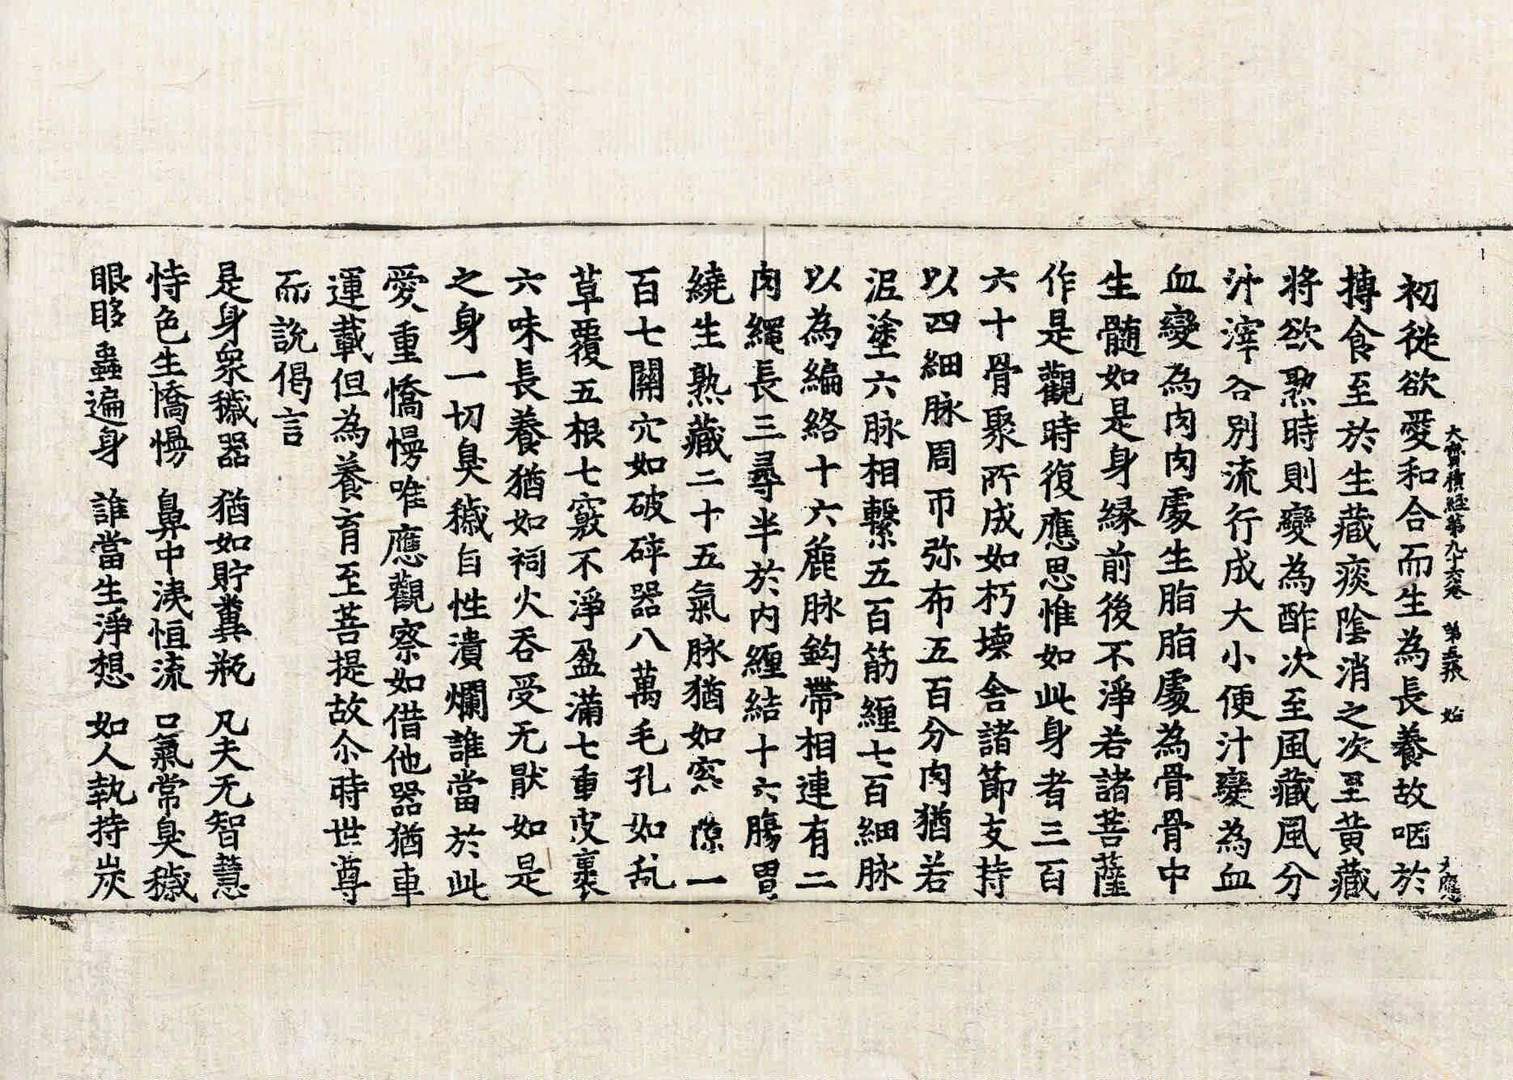 初從欲愛和合而生為長養故咽於
大寶積經第九十六卷　第五張　始
摶食至於生藏痰陰消之次至黃藏
將欲熟時則變為酢次至風藏風分
汁滓各別流行成大小便汁變為血
血變為肉肉處生脂脂處為骨骨中
生髓如是身緣前後不淨若諸菩薩
作是觀時復應思惟如此身者三百
六十骨聚所成如朽壞舍諸節支持
以四細脉周帀弥布五百分肉猶若
泥塗六脉相繫五百筋纏七百細脉
以為編絡十六麁脉鈎帶相連有二
肉繩長三尋半於內纏結十六膓胃
繞生熟藏二十五氣脉猶如窓隙一
百七關穴如破碎器八萬毛孔如乱
草覆五根七竅不淨盈滿七重皮裹
六味長養猶如祠火吞受无猒如是
之身一切臭穢自性潰爛誰當於此
愛重憍慢唯應觀察如借他器猶車
運載但為養育至菩提故尒時世尊
而說偈言
是身眾穢器　猶如貯糞瓶　凡夫无智慧
恃色生憍慢　鼻中洟恒流　口氣常臭穢
眼眵蟲遍身　誰當生淨想　如人執持炭